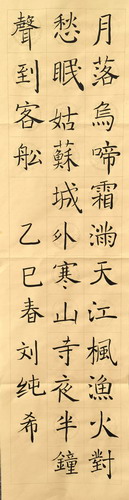 月落烏啼霜滿天江楓漁火對
愁眠姑蘇城外寒山寺夜半鐘
聲到客船 乙巳春刘纯希